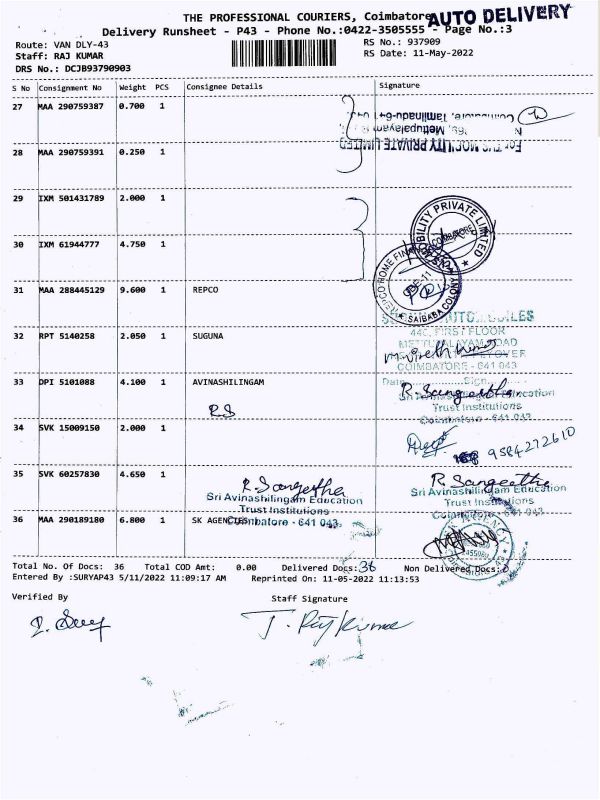 THE PROFESSIONAL COURIERS, Coimbatore
AUTO DELIVERY
Delivery Runsheet - P43 - Phone No.:0422-3505555 - Page No.:3
Route: VAN DLY-43
RS No.: 937909
Staff: RAJ KUMAR
RS Date: 11-May-2022
DRS No.: DCJB93790903
S No Consignment No Weight PCS Consignee Details Signature
27 MAA 290759387 0.700 1
Coimbatore, Tamilnadu-641
Mettupalayam
MOBILITY PRIVATE LIMITED
28 MAA 290759391 0.250 1
29 IXM 501431789 2.000 1
MOBILITY PRIVATE LIMITED
COIMBATORE
30 IXM 61944777 4.750 1
REPCO HOME FINANCE
SAIBABA COLONY
31 MAA 288445129 9.600 1 REPCO
32 RPT 5140258 2.050 1 SUGUNA
FIRST FLOOR
METTUPALAYAM ROAD
COIMBATORE - 641 043
33 DPI 5101088 4.100 1 AVINASHILINGAM
RS
Date Sign
R. Sangeetha
Sri Avinashilingam Education
Trust Institutions
Coimbatore - 641 043
34 SVK 15009150 2.000 1
9584272610
35 SVK 60257830 4.650 1
R. Sangeetha
Sri Avinashilingam Education
Trust Institutions
Coimbatore - 641 043
R. Sangeetha
Sri Avinashilingam Education
Trust Institutions
Coimbatore - 641 043
36 MAA 290189180 6.800 1 SK AGENCIES
SK AGENCY
Total No. Of Docs: 36 Total COD Amt: 0.00 Delivered Docs: 36 Non Delivered Docs:
Entered By :SURYAP43 5/11/2022 11:09:17 AM Reprinted On: 11-05-2022 11:13:53
Verified By Staff Signature
T. Rajkumar